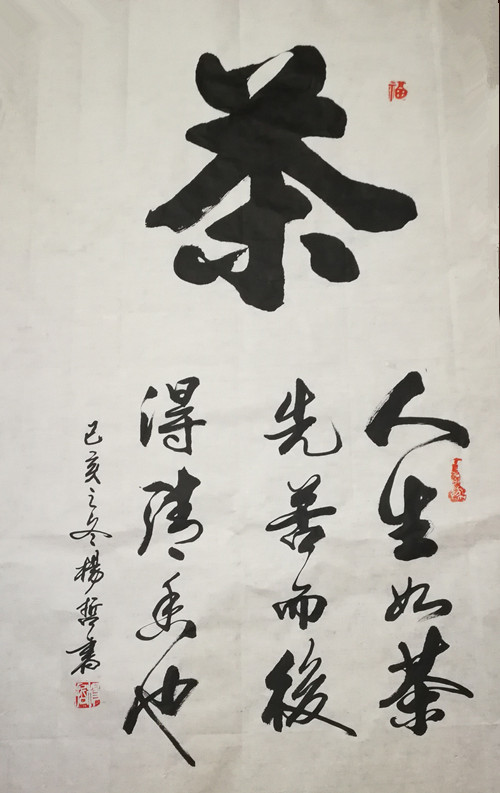 茶
福
人生如茶
先苦而後
得清香也
己亥之冬楊哲書